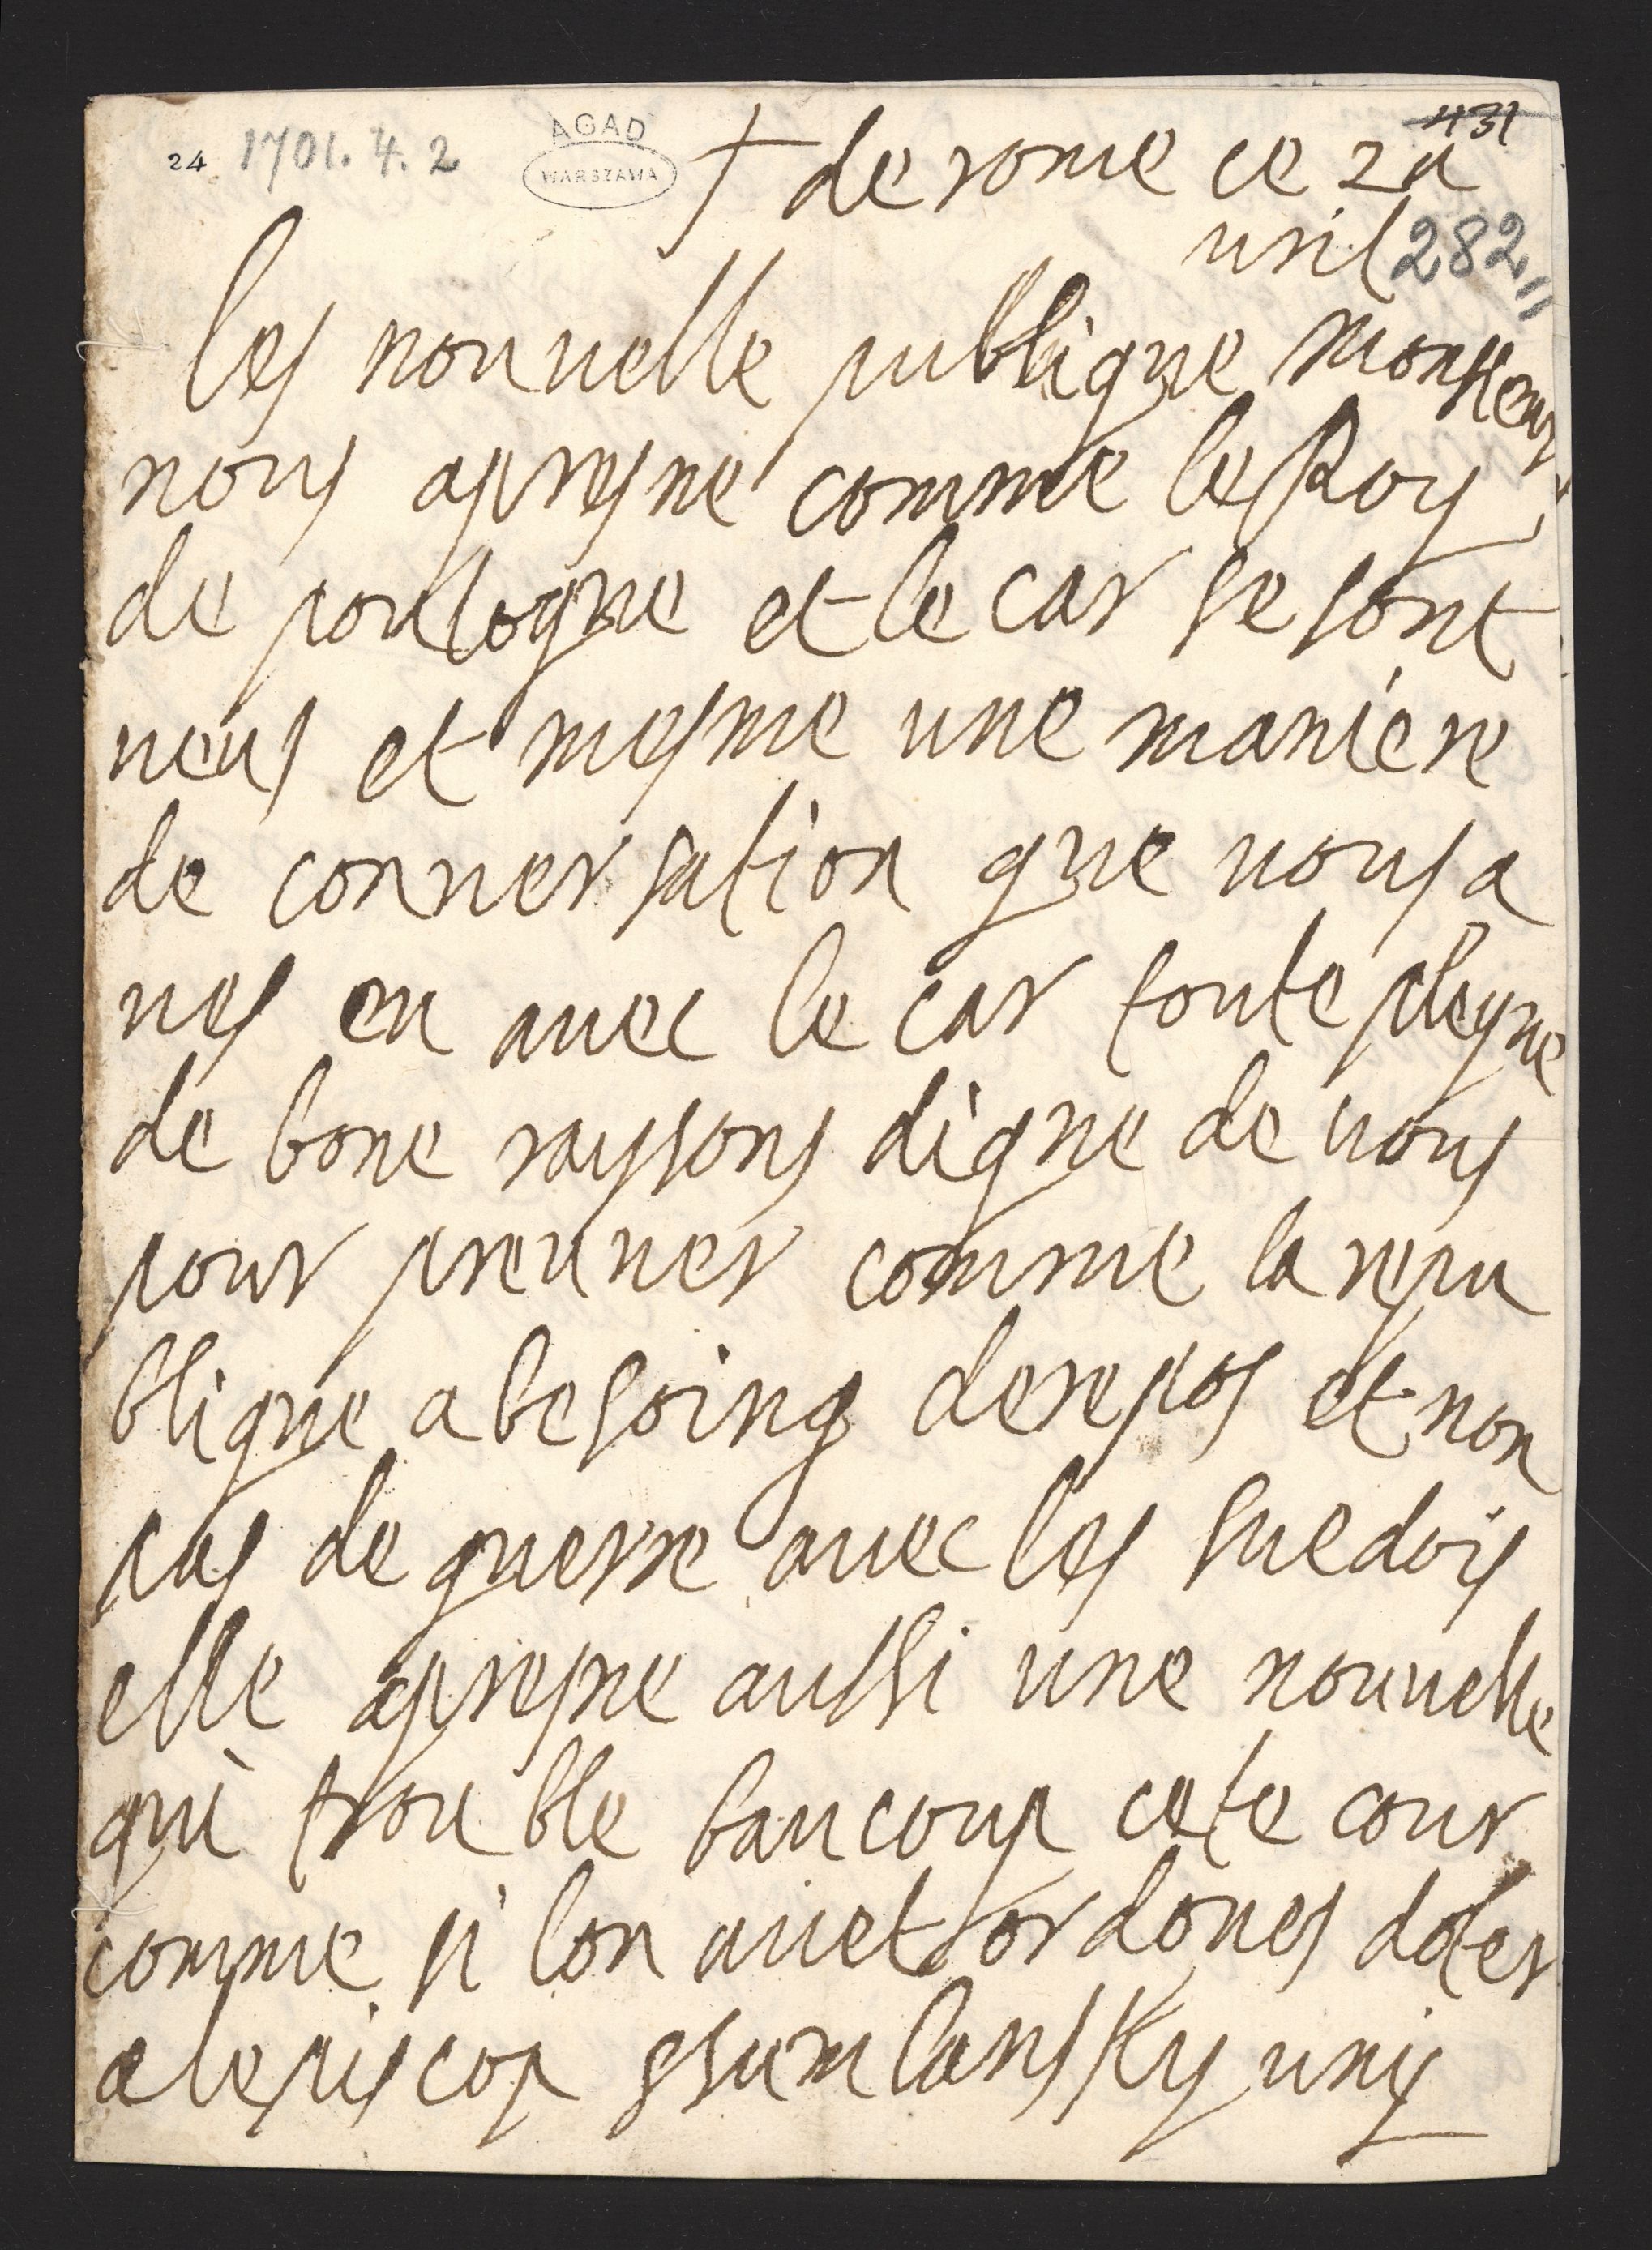 431
24 1701.4.2 AGAD WARSZAWA † de rome ce 2 a
uril 282
les nouuelle publique monsieur
nous apresne comme les Roy
de poulogne et le car se sont
ueus et mesme une maniere
de conuersation que uous a
ues eu auec le car toute pleyne
de bone raysons digne de uous
pour preuuer comme la repu
blique a besoing de repos et non
pas de guerre auec les suedois
elle apresne aussi une nouuelle
qui trouble baucoup cete cour
comme si lon auet ordones doter
a lepiscop shumlansky unis